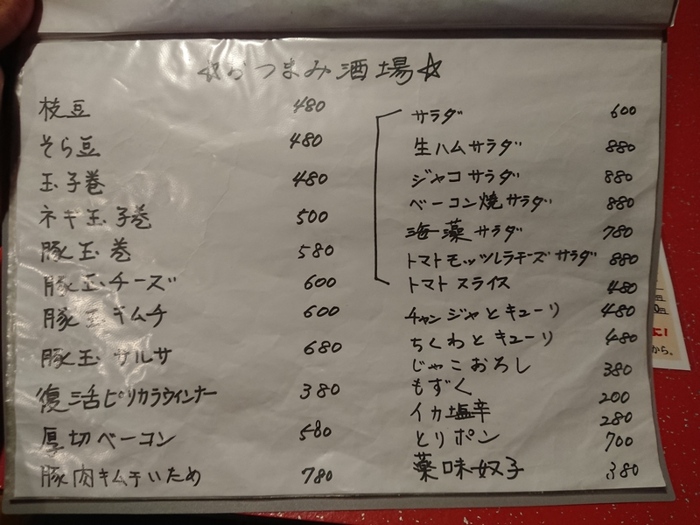 ☆おつまみ酒場☆
枝豆 480
そら豆 480
玉子巻 480
ネギ玉子巻 500
豚玉巻 580
豚玉チーズ 600
豚玉キムチ 600
豚玉サルサ 680
復活ピリカラウインナー 380
厚切ベーコン 580
豚肉キムチいため 780
サラダ 600
生ハムサラダ 880
ジャコサラダ 880
ベーコン焼サラダ 880
海藻サラダ 780
トマトモッツレラチーズサラダ 880
トマトスライス 480
チャンジャとキューリ 480
ちくわとキューリ 480
じゃこおろし 380
もずく 200
イカ塩辛 280
とりポン 700
薬味奴子 380
から。